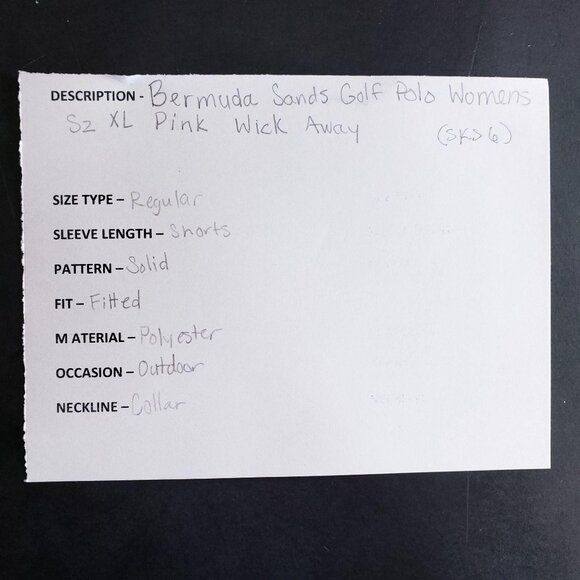 DESCRIPTION - Bermuda Sands Golf Polo Womens
Sz XL Pink Wick Away (SKS6)
SIZE TYPE – Regular
SLEEVE LENGTH – Shorts
PATTERN – Solid
FIT – Fitted
M ATERIAL – Polyester
OCCASION – Outdoor
NECKLINE – Collar